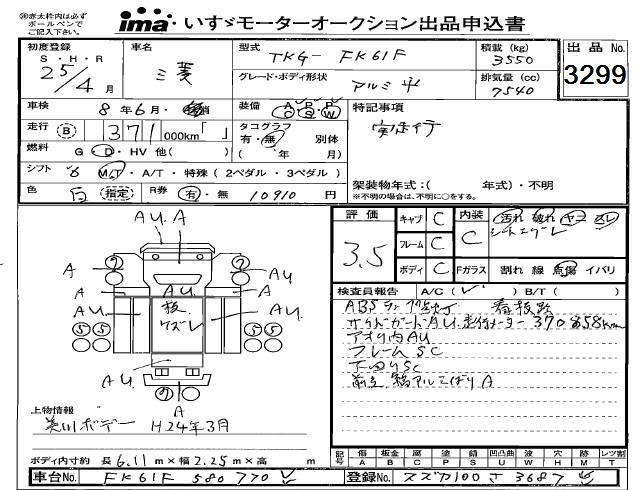 ※赤太枠内は必ず
ボールペンで
ご記入下さい。
ima いすゞモーターオークション出品申込書
初度登録
S・H・R
25/4月
車名
三菱
型式
TKG- FK61F
積載(kg)
3550
グレード・ボディ形状
アルミ平
排気量(cc)
7540
出品No.
3299
車検
8年6月・
消
装備
A P P
C S W
特記事項
走行
B
371,000km「 」
タコグラフ
有・無 別体
( 年 月)
燃料
G・D・HV 他( )
シフト
6 M/T・A/T・特殊(2ペダル・3ペダル)
色
白 指定
R券
有・無 10910円
架装物年式:( 年式)・不明
※不明の場合は、不明に○をする。
AU. A
A
2
2
AU
A
A
AU
AU
AU
板
ワズレ
5 5
5 5
AU.
AU
2
A
上物情報
美川ボデー H24年3月
ボディ内寸約 長6.11m×幅2.25m×高 m
評価
3.5
キャブ C
フレーム C
ボディ C
内装
C
汚れ 破れ ヤニ スレ
Fガラス 割れ 線 点傷 イバリ
検査員報告 A/C( )B/T( )
ABSランプ点灯 看板跡
サイドガードAU.走行メーター370858km
アオリ内AU
フレームSC
下回りSC
記号
傷 板金 腐 塗 錆 凹 凸凹曲 波 穴 跡 レツ割
A B C P S U W H M T
車台No. FK61F 580770
登録No. スズカ100さ3687